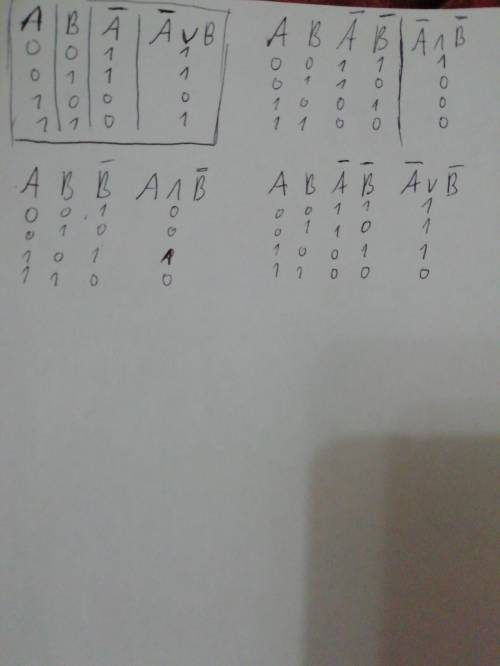 A B A̅ A̅ ∨ B
0 0 1 1
0 1 1 1
1 0 0 0
1 1 0 1
A B A̅ B̅ A̅ ∧ B̅
0 0 1 1 1
0 1 1 0 0
1 0 0 1 0
1 1 0 0 0
A B B̅ A ∧ B̅
0 0 1 0
0 1 0 0
1 0 1 1
1 1 0 0
A B A̅ B̅ A̅ ∨ B̅
0 0 1 1 1
0 1 1 0 1
1 0 0 1 1
1 1 0 0 0